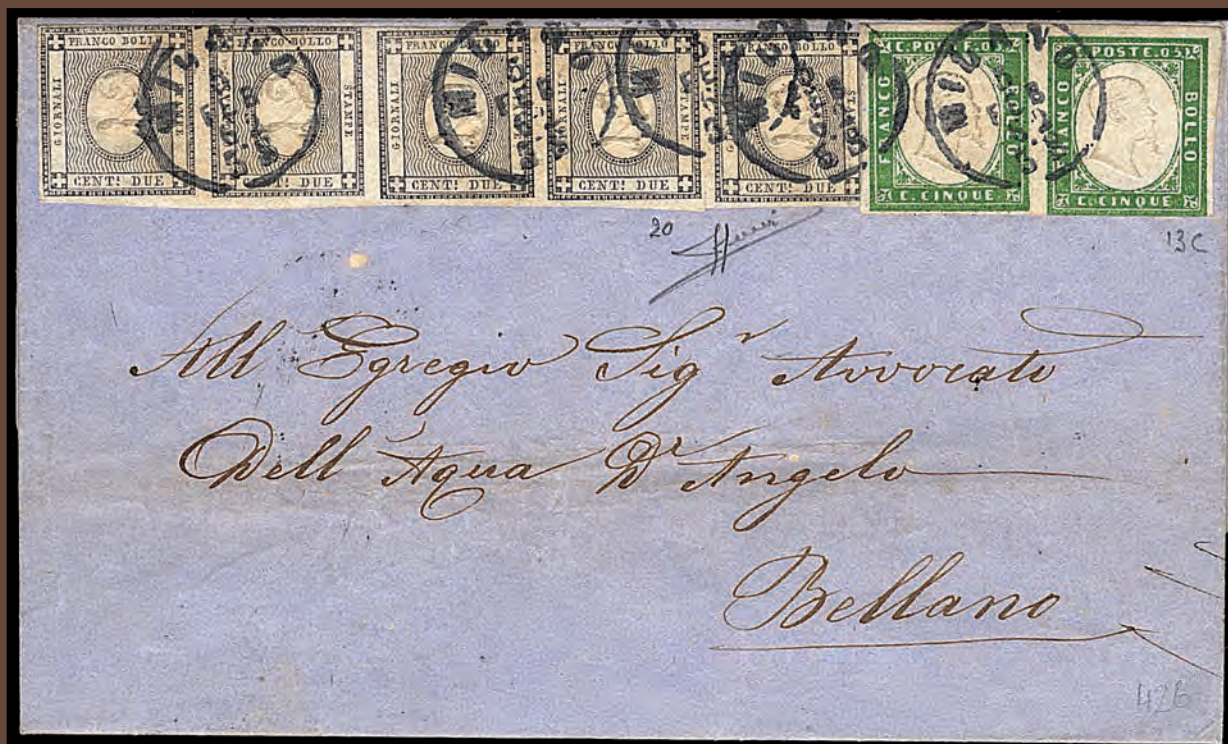 FRANCO BOLLO
GIORNALI
STAMPE
CENT! DUE
FRANCO BOLLO
STAMPE
CENT! DUE
FRANCO BOLLO
GIORNALI
CENT! DUE
FRANCO BOLLO
GIORNALI
STAMPE
CENT! DUE
FRANCO BOLLO
STAMPE
CENT! DUE
C. POSTE. 05.
FRANCO
BOLLO
C. CINQUE
C. POSTE. 05.
FRANCO
BOLLO
C. CINQUE
MILANO
MILANO
MILANO
MILANO
MILANO
20
13c
All Egregio Sigr Avvocato
Dell'Aqua Dr Angelo
Bellano
426